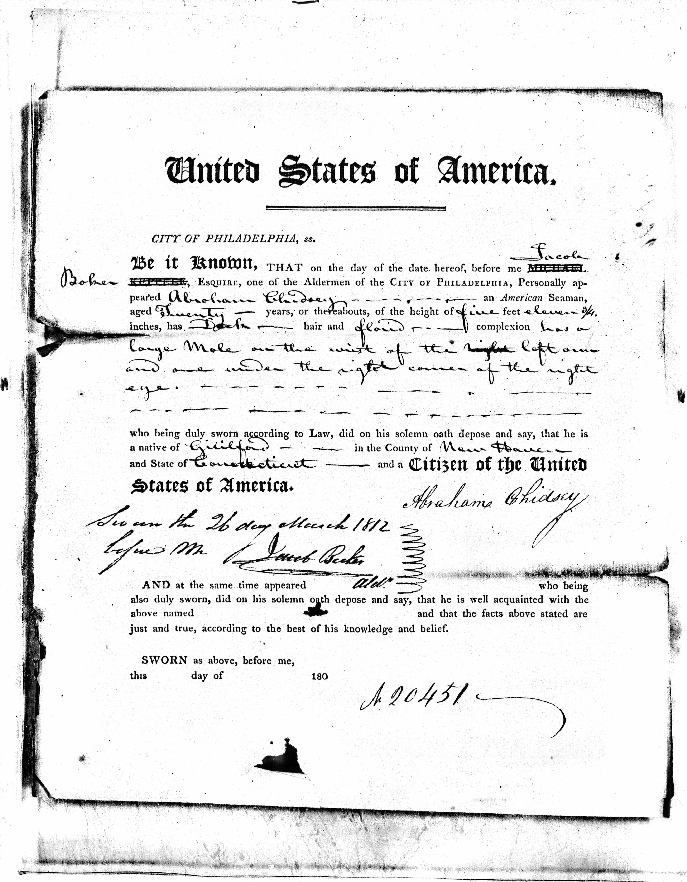 United States of America.
CITY OF PHILADELPHIA, ss.
Jacob
Be it Known, THAT on the day of the date hereof, before me MICHAEL
Baker KEPPELE, ESQUIRE, one of the Aldermen of the CITY OF PHILADELPHIA, Personally ap-
peared Abraham Chidsey an American Seaman,
aged Twenty years, or thereabouts, of the height of five feet eleven 3/4
inches, has Dark hair and florid complexion has a
large Mole on the wrist of the right left arm
and one under the right corner of the right
eye.
who being duly sworn according to Law, did on his solemn oath depose and say, that he is
a native of Guilford in the County of New Haven
and State of Connecticut and a Citizen of the United
States of America.
Abraham Chidsey
Sworn the 26 day March 1812
before Me Jacob Baker
Aldn
AND at the same time appeared who being
also duly sworn, did on his solemn oath depose and say, that he is well acquainted with the
above named and that the facts above stated are
just and true, according to the best of his knowledge and belief.
SWORN as above, before me,
this day of 180
N 20451